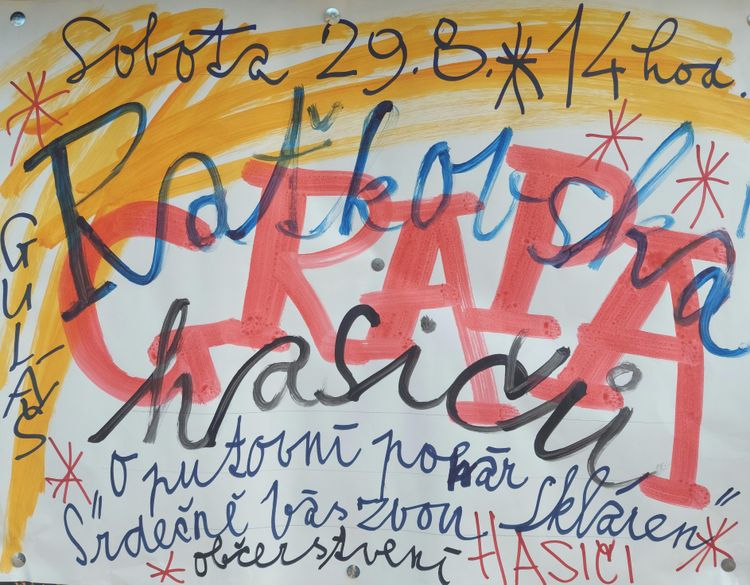 Sobota 29.8. * 14 hod.
Raťkovska
GRAPA
hasiči
GULÁŠ
o putovní pohár
Srdečně vás zvou „Skláren"
občerstvení HASIČI